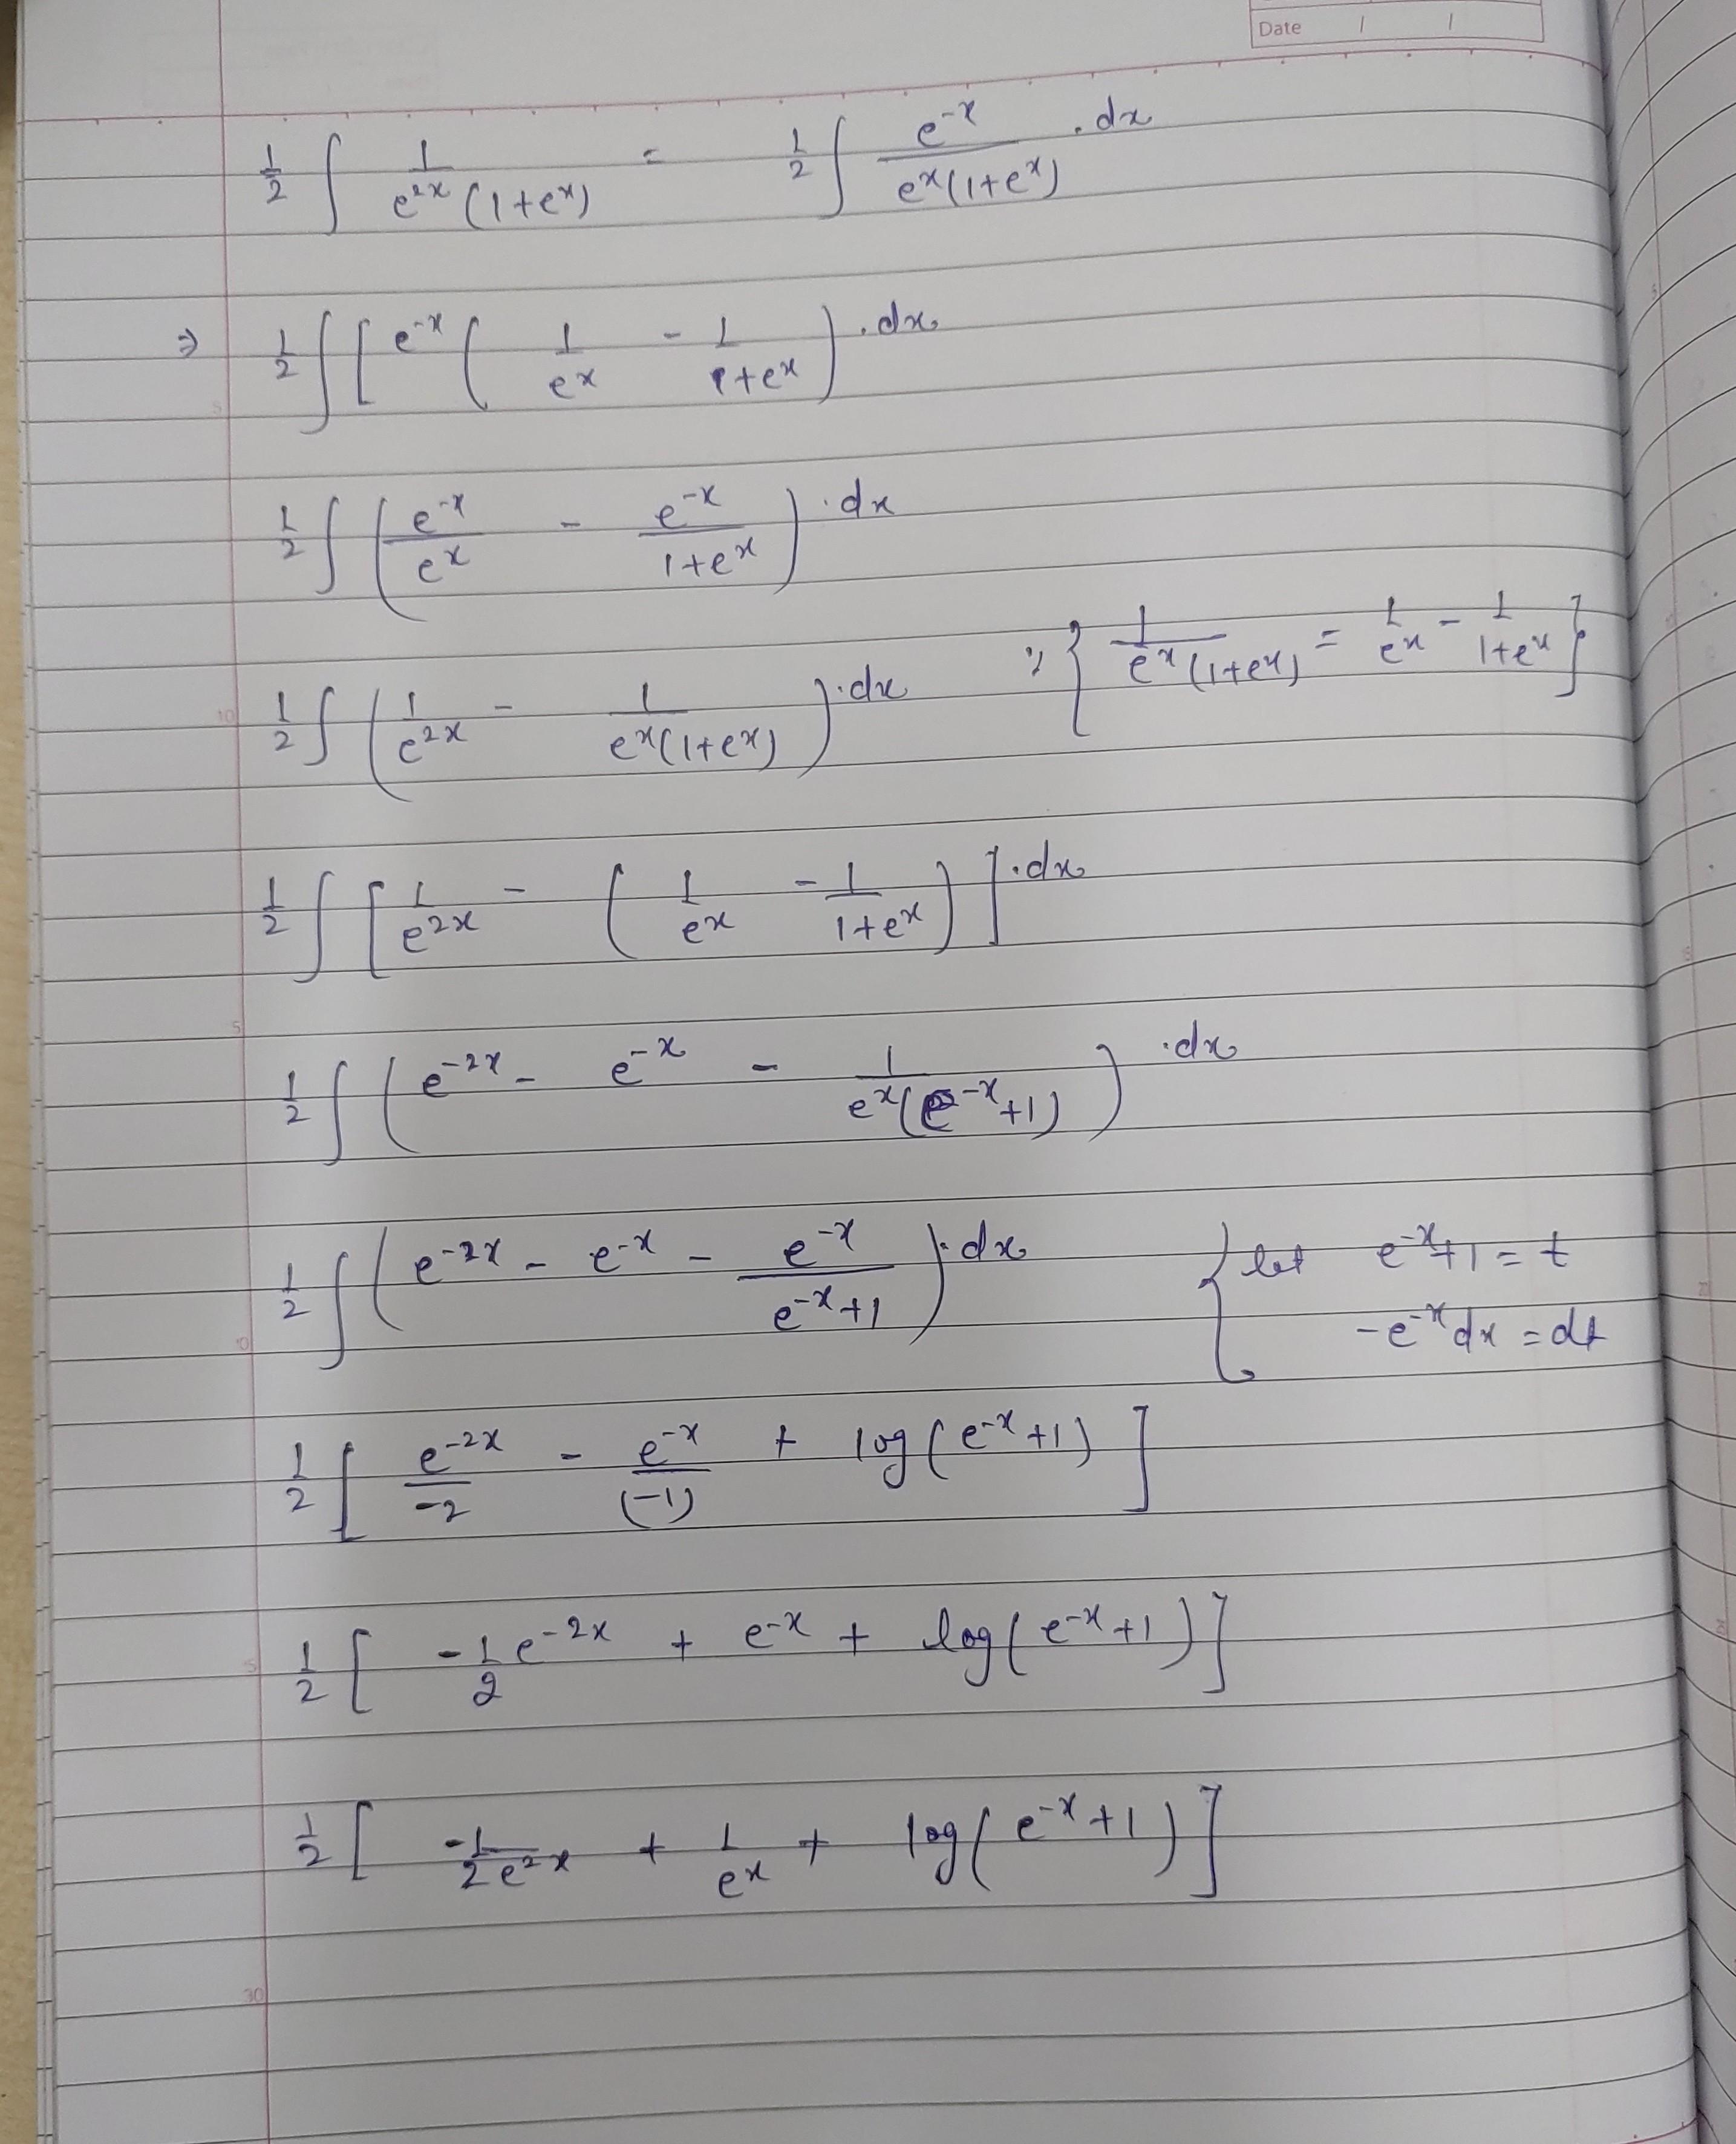 Date / /
1/2 ∫ 1/(e^{2x}(1+e^x)) = 1/2 ∫ e^{-x}/(e^x(1+e^x)) . dx
⇒ 1/2 ∫ [ e^{-x} ( 1/e^x - 1/(1+e^x) ) . dx
1/2 ∫ ( e^{-x}/e^x - e^{-x}/(1+e^x) ) . dx
1/2 ∫ ( 1/e^{2x} - 1/(e^x(1+e^x)) ) . dx ∵ { 1/(e^x(1+e^x)) = 1/e^x - 1/(1+e^x) }
1/2 ∫ [ 1/e^{2x} - ( 1/e^x - 1/(1+e^x) ) ] . dx
1/2 ∫ ( e^{-2x} - e^{-x} - 1/(e^x(e^{-x}+1)) ) . dx
1/2 ∫ ( e^{-2x} - e^{-x} - e^{-x}/(e^{-x}+1) ) . dx { let e^{-x}+1 = t
-e^{-x} dx = dt
1/2 [ e^{-2x}/-2 - e^{-x}/(-1) + log(e^{-x}+1) ]
1/2 [ -1/2 e^{-2x} + e^{-x} + log(e^{-x}+1) ]
1/2 [ -1/2e^{2x} + 1/e^x + log(e^{-x}+1) ]
5
10
5
10
5
30